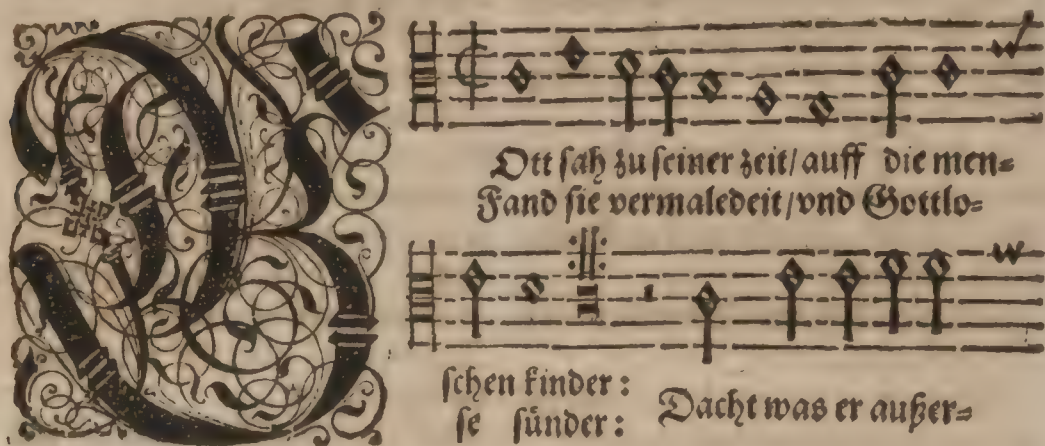 GOtt sah zu seiner zeit/ auff die men⸗
Fand sie vermaledeit/ vnd Gottlo⸗
schen kinder :
se sünder : Dacht was er außer⸗